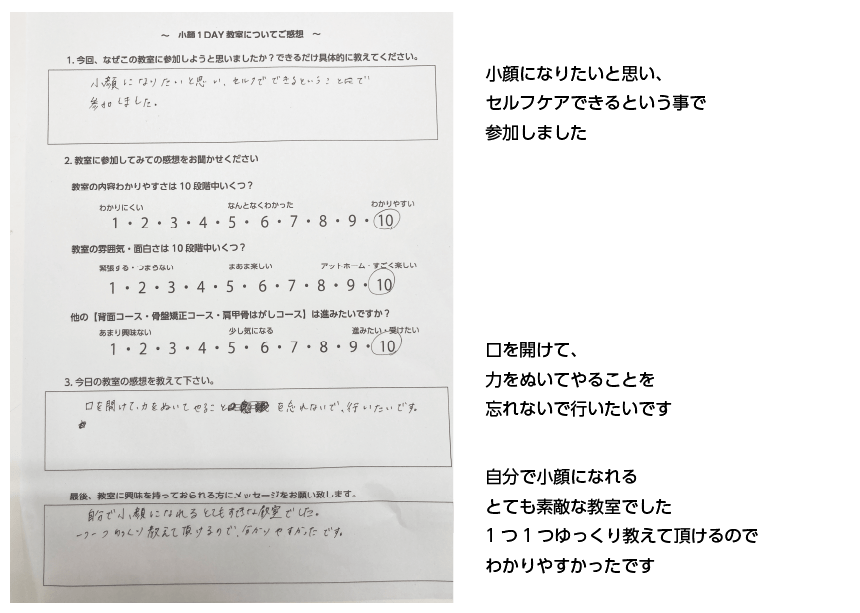 ～ 小顔１DAY教室についてご感想 ～
1. 今回、なぜこの教室に参加しようと思いましたか？できるだけ具体的に教えてください。
小顔になりたいと思い、セルフでできるということで
参加しました。
2. 教室に参加してみての感想をお聞かせください
教室の内容わかりやすさは 10 段階中いくつ？
わかりにくい なんとなくわかった わかりやすい
1・2・3・4・5・6・7・8・9・10
教室の雰囲気・面白さは 10 段階中いくつ？
緊張する・つまらない まあま楽しい アットホーム・すごく楽しい
1・2・3・4・5・6・7・8・9・10
他の【背面コース・骨盤矯正コース・肩甲骨はがしコース】は進みたいですか？
あまり興味ない 少し気になる 進みたい・受けたい
1・2・3・4・5・6・7・8・9・10
3. 今日の教室の感想を教えて下さい。
口を開けて、力をぬいてやること を忘れないで、行いたいです。
最後、教室に興味を持っておられる方にメッセージをお願い致します。
自分で小顔になれるとてもすてきな教室でした。
一つ一つゆっくり教えて頂けるので、分かりやすかったです。
小顔になりたいと思い、
セルフケアできるという事で
参加しました
口を開けて、
力をぬいてやることを
忘れないで行いたいです
自分で小顔になれる
とても素敵な教室でした
１つ１つゆっくり教えて頂けるので
わかりやすかったです